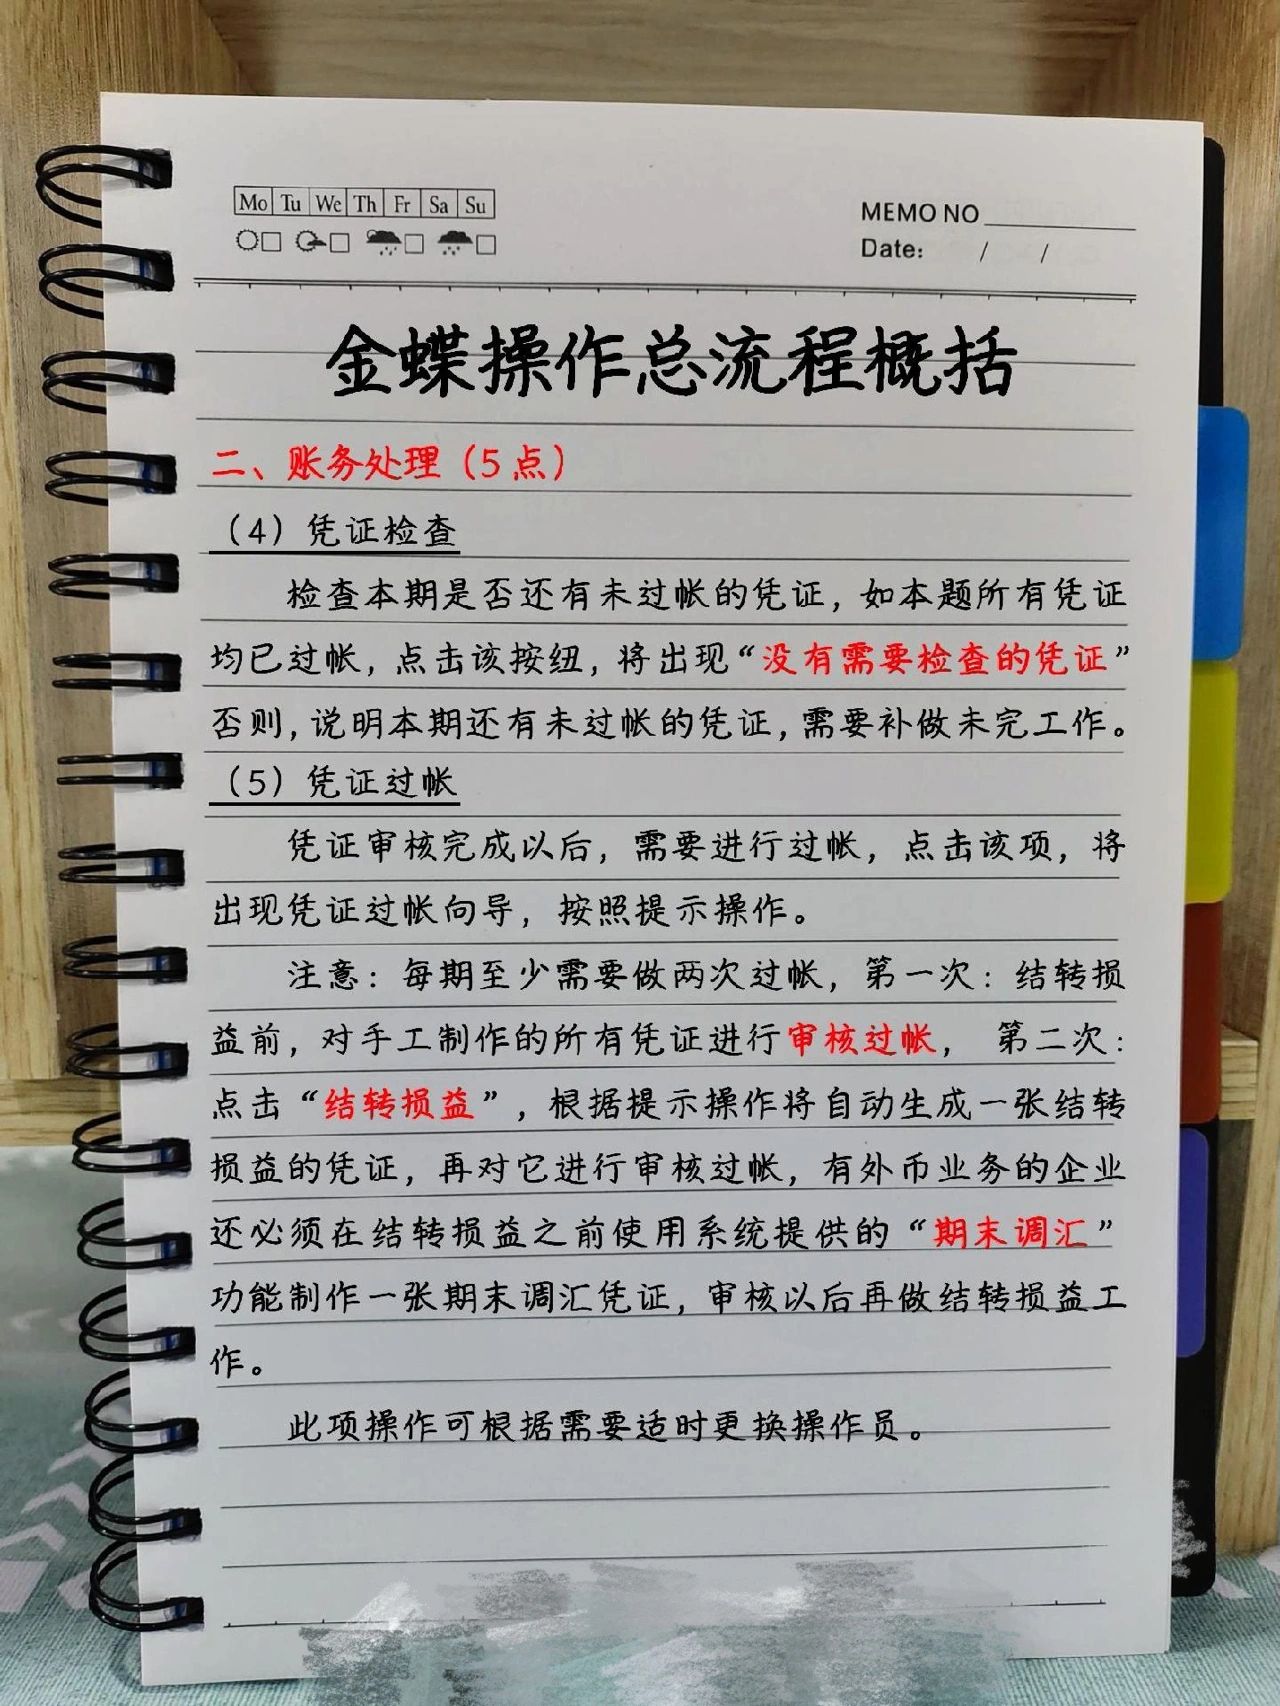 Mo Tu We Th Fr Sa Su
MEMO NO
Date: / /
金蝶操作总流程概括
二、账务处理（5点）
（4）凭证检查
检查本期是否还有未过帐的凭证，如本题所有凭证
均已过帐，点击该按纽，将出现“没有需要检查的凭证”
否则，说明本期还有未过帐的凭证，需要补做未完工作。
（5）凭证过帐
凭证审核完成以后，需要进行过帐，点击该项，将
出现凭证过帐向导，按照提示操作。
注意：每期至少需要做两次过帐，第一次：结转损
益前，对手工制作的所有凭证进行审核过帐， 第二次：
点击“结转损益”，根据提示操作将自动生成一张结转
损益的凭证，再对它进行审核过帐，有外币业务的企业
还必须在结转损益之前使用系统提供的“期末调汇”
功能制作一张期末调汇凭证，审核以后再做结转损益工
作。
此项操作可根据需要适时更换操作员。